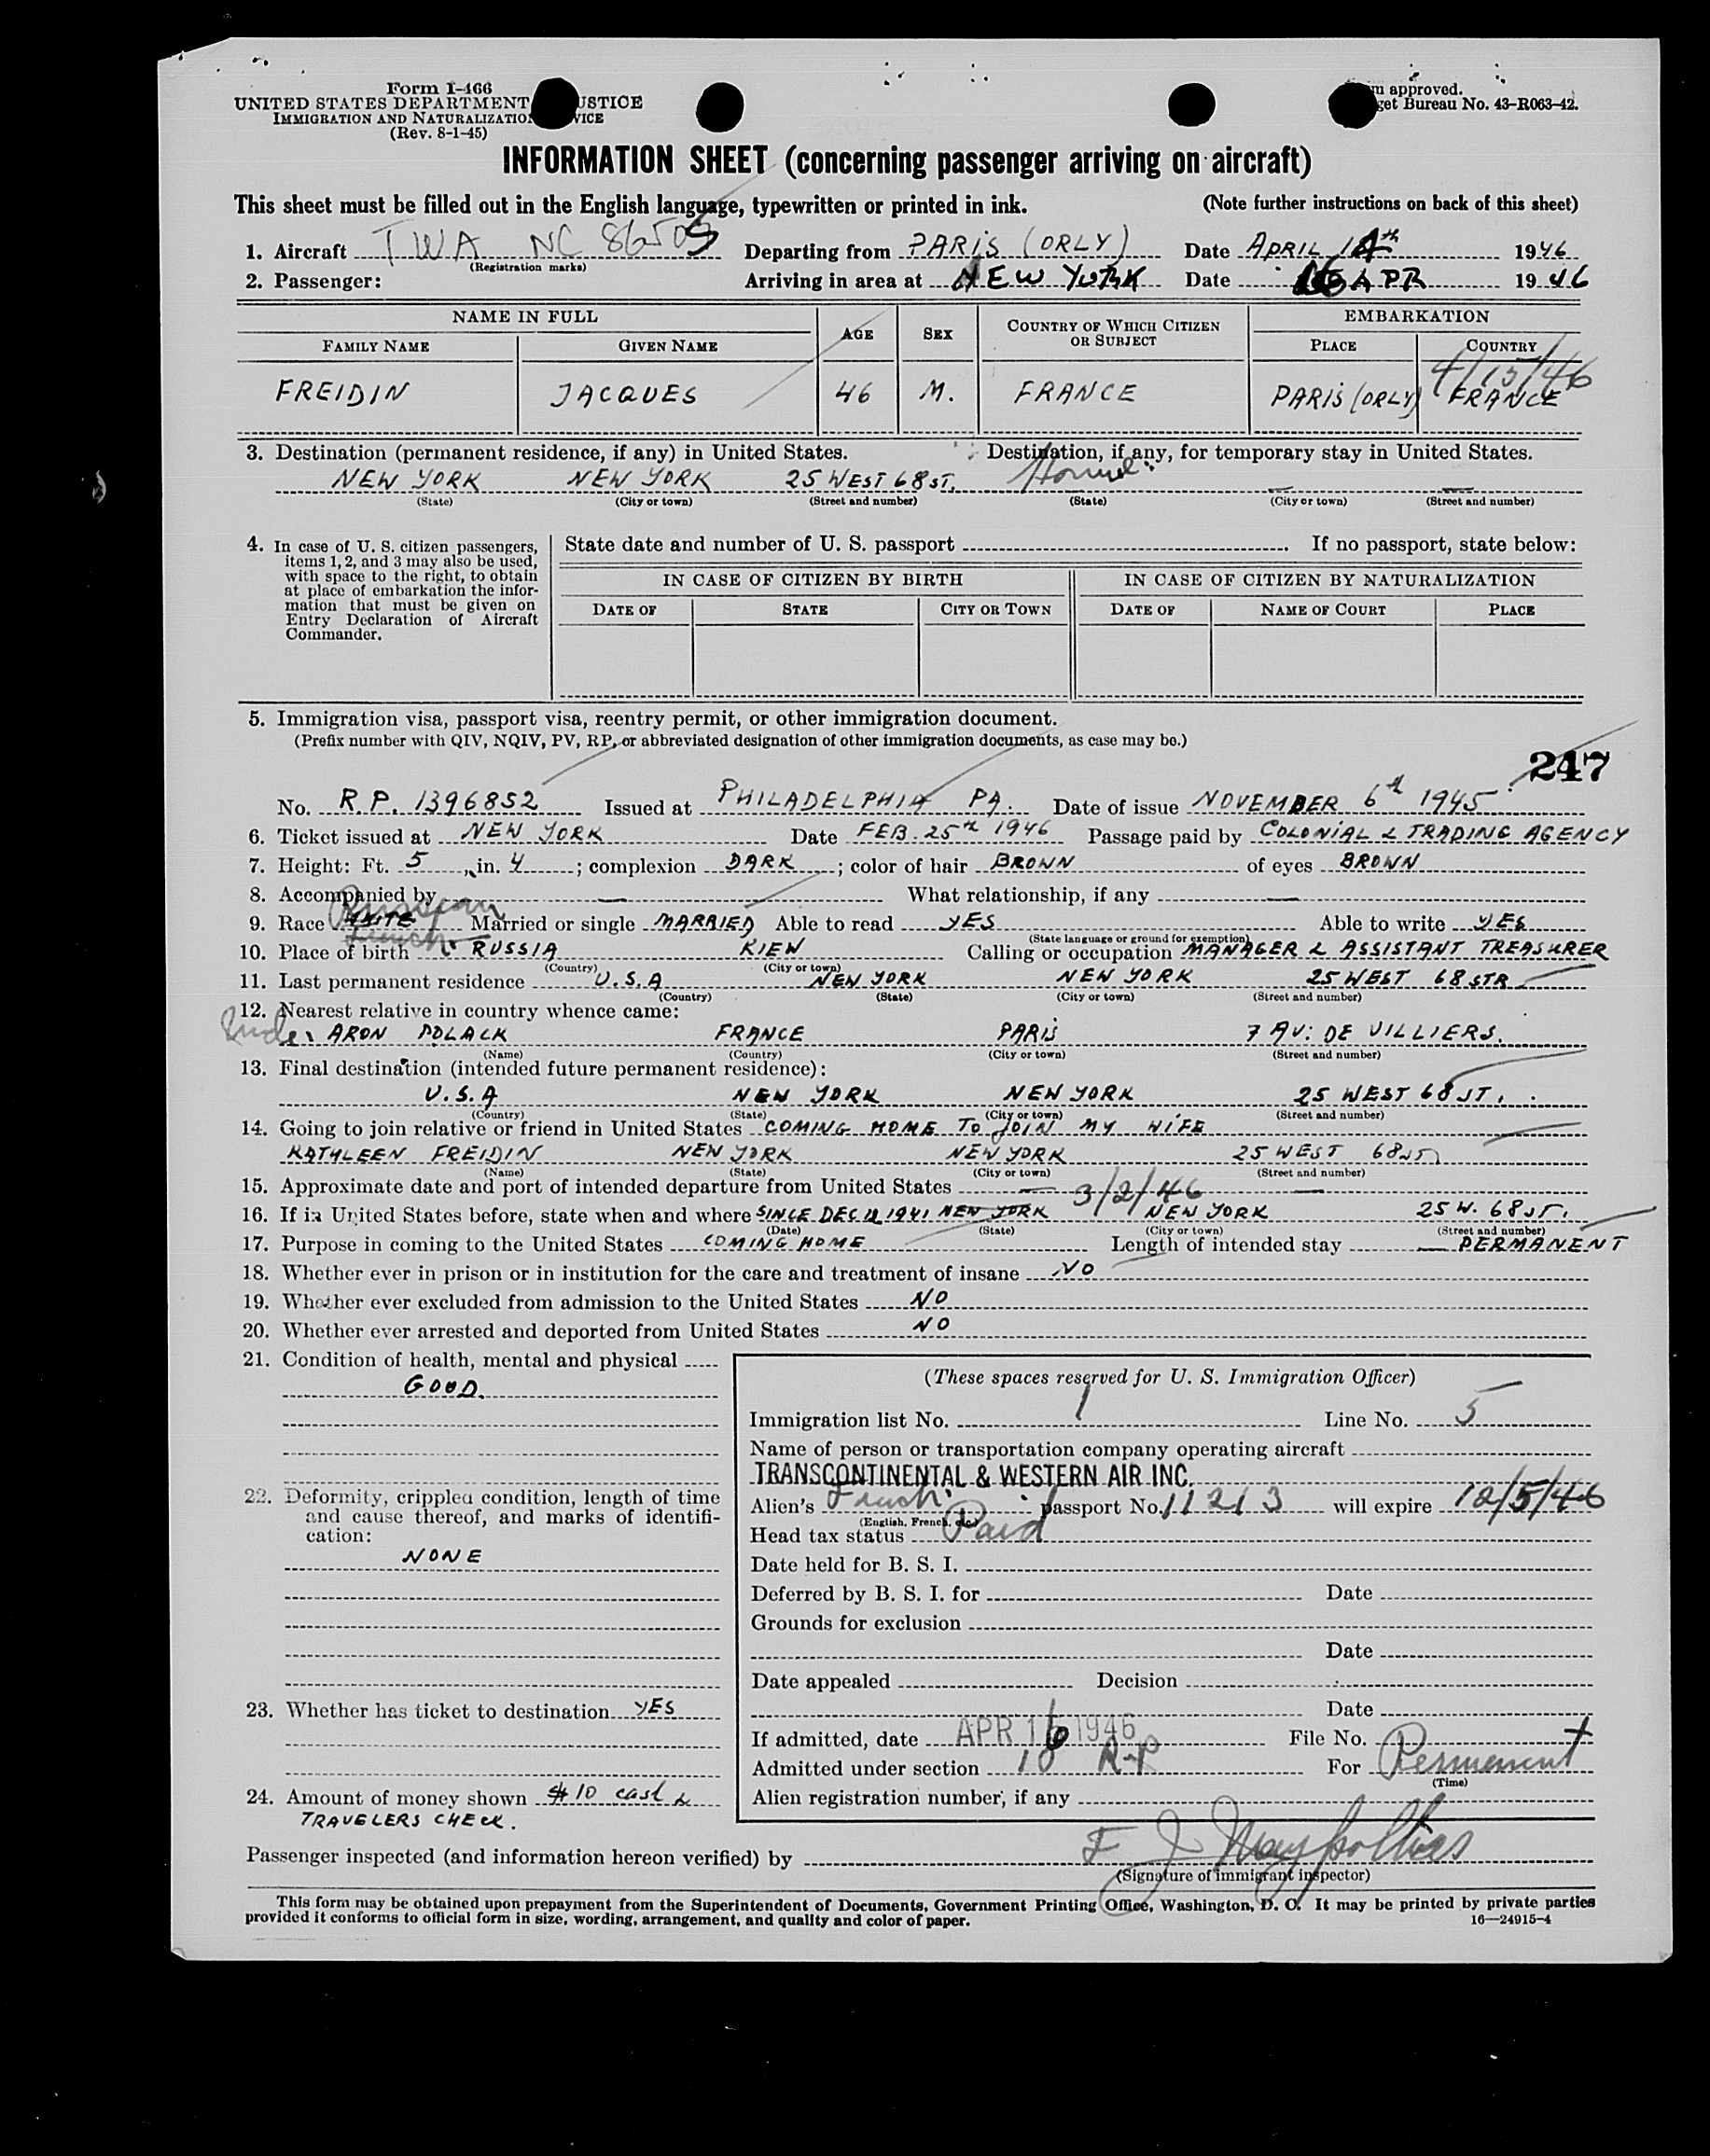 Form I-466
UNITED STATES DEPARTMENT USTICE
IMMIGRATION AND NATURALIZATION VICE
(Rev. 8-1-45)
m approved.
get Bureau No. 43-R063-42.
INFORMATION SHEET (concerning passenger arriving on aircraft)
This sheet must be filled out in the English language, typewritten or printed in ink. (Note further instructions on back of this sheet)
1. Aircraft TWA NC 86505 Departing from PARIS (ORLY) Date APRIL 14th 1946
(Registration marks)
2. Passenger: Arriving in area at NEW YORK Date 16 APR 1946
NAME IN FULL AGE SEX COUNTRY OF WHICH CITIZEN OR SUBJECT EMBARKATION
FAMILY NAME GIVEN NAME PLACE COUNTRY
4/15/46
FREIDIN JACQUES 46 M. FRANCE PARIS (ORLY) FRANCE
3. Destination (permanent residence, if any) in United States. Destination, if any, for temporary stay in United States.
NEW YORK NEW YORK 25 WEST 68 ST. Home
(State) (City or town) (Street and number) (State) (City or town) (Street and number)
4. In case of U. S. citizen passengers, items 1, 2, and 3 may also be used, with space to the right, to obtain at place of embarkation the information that must be given on Entry Declaration of Aircraft Commander.
State date and number of U. S. passport If no passport, state below:
IN CASE OF CITIZEN BY BIRTH IN CASE OF CITIZEN BY NATURALIZATION
DATE OF STATE CITY OR TOWN DATE OF NAME OF COURT PLACE
5. Immigration visa, passport visa, reentry permit, or other immigration document.
(Prefix number with QIV, NQIV, PV, RP, or abbreviated designation of other immigration documents, as case may be.)
247
No. R.P. 1396852 Issued at PHILADELPHIA PA. Date of issue NOVEMBER 6th 1945
6. Ticket issued at NEW YORK Date FEB. 25th 1946 Passage paid by COLONIAL & TRADING AGENCY
7. Height: Ft. 5, in. 4; complexion DARK; color of hair BROWN of eyes BROWN
8. Accompanied by — What relationship, if any —
Russian
9. Race WHITE Married or single MARRIED Able to read YES Able to write YES
French (State language or ground for exemption)
10. Place of birth RUSSIA KIEW Calling or occupation MANAGER & ASSISTANT TREASURER
(Country) (City or town)
11. Last permanent residence U.S.A NEW YORK NEW YORK 25 WEST 68 STR
(Country) (State) (City or town) (Street and number)
12. Nearest relative in country whence came:
ARON POLACK FRANCE PARIS 7 AV: DE VILLIERS.
(Name) (Country) (City or town) (Street and number)
13. Final destination (intended future permanent residence):
U.S.A NEW YORK NEW YORK 25 WEST 68 ST.
(Country) (State) (City or town) (Street and number)
14. Going to join relative or friend in United States COMING HOME TO JOIN MY WIFE
KATHLEEN FREIDIN NEW YORK NEW YORK 25 WEST 68 ST
(Name) (State) (City or town) (Street and number)
15. Approximate date and port of intended departure from United States — 3/2/46 —
16. If in United States before, state when and where SINCE DEC 12 1941 NEW YORK NEW YORK 25 W. 68 ST.
(Date) (State) (City or town) (Street and number)
17. Purpose in coming to the United States COMING HOME Length of intended stay — PERMANENT
18. Whether ever in prison or in institution for the care and treatment of insane NO
19. Whether ever excluded from admission to the United States NO
20. Whether ever arrested and deported from United States NO
21. Condition of health, mental and physical
GOOD.
22. Deformity, crippled condition, length of time and cause thereof, and marks of identification:
NONE
23. Whether has ticket to destination YES
24. Amount of money shown $10 cash &
TRAVELERS CHECK.
(These spaces reserved for U. S. Immigration Officer)
Immigration list No. 1 Line No. 5
Name of person or transportation company operating aircraft
TRANSCONTINENTAL & WESTERN AIR INC.
Alien's French passport No. 11213 will expire 12/5/46
(English, French, etc.)
Head tax status Paid
Date held for B. S. I.
Deferred by B. S. I. for Date
Grounds for exclusion
Date
Date appealed Decision
Date
If admitted, date APR 16 1946 File No.
Admitted under section 10 R-P For Permanent
(Time)
Alien registration number, if any
Passenger inspected (and information hereon verified) by F J
(Signature of immigrant inspector)
This form may be obtained upon prepayment from the Superintendent of Documents, Government Printing Office, Washington, D. C. It may be printed by private parties
provided it conforms to official form in size, wording, arrangement, and quality and color of paper. 16—24915-4